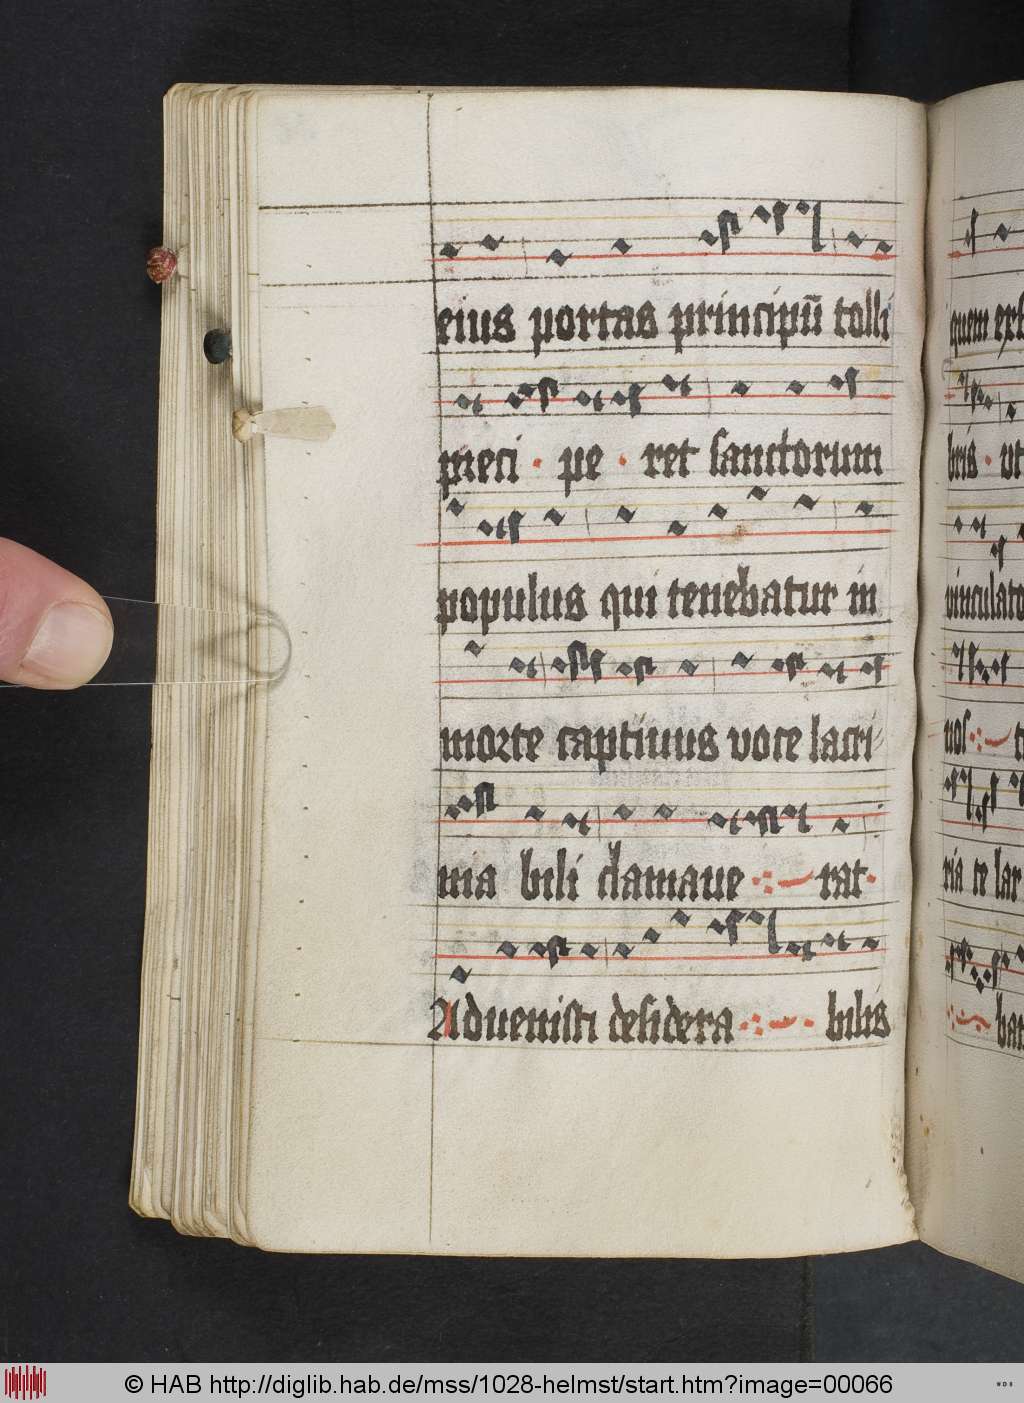 eius portas principū tolli
preci · pe · ret sanctorum
populus qui tenebatur in
morte captiuus voce lacri
ma bili clamaue rat ·
Aduenisti desidera bilis
quem
bris · ut
vinculato
nos
ria te lar
ban
© HAB http://diglib.hab.de/mss/1028-helmst/start.htm?image=00066